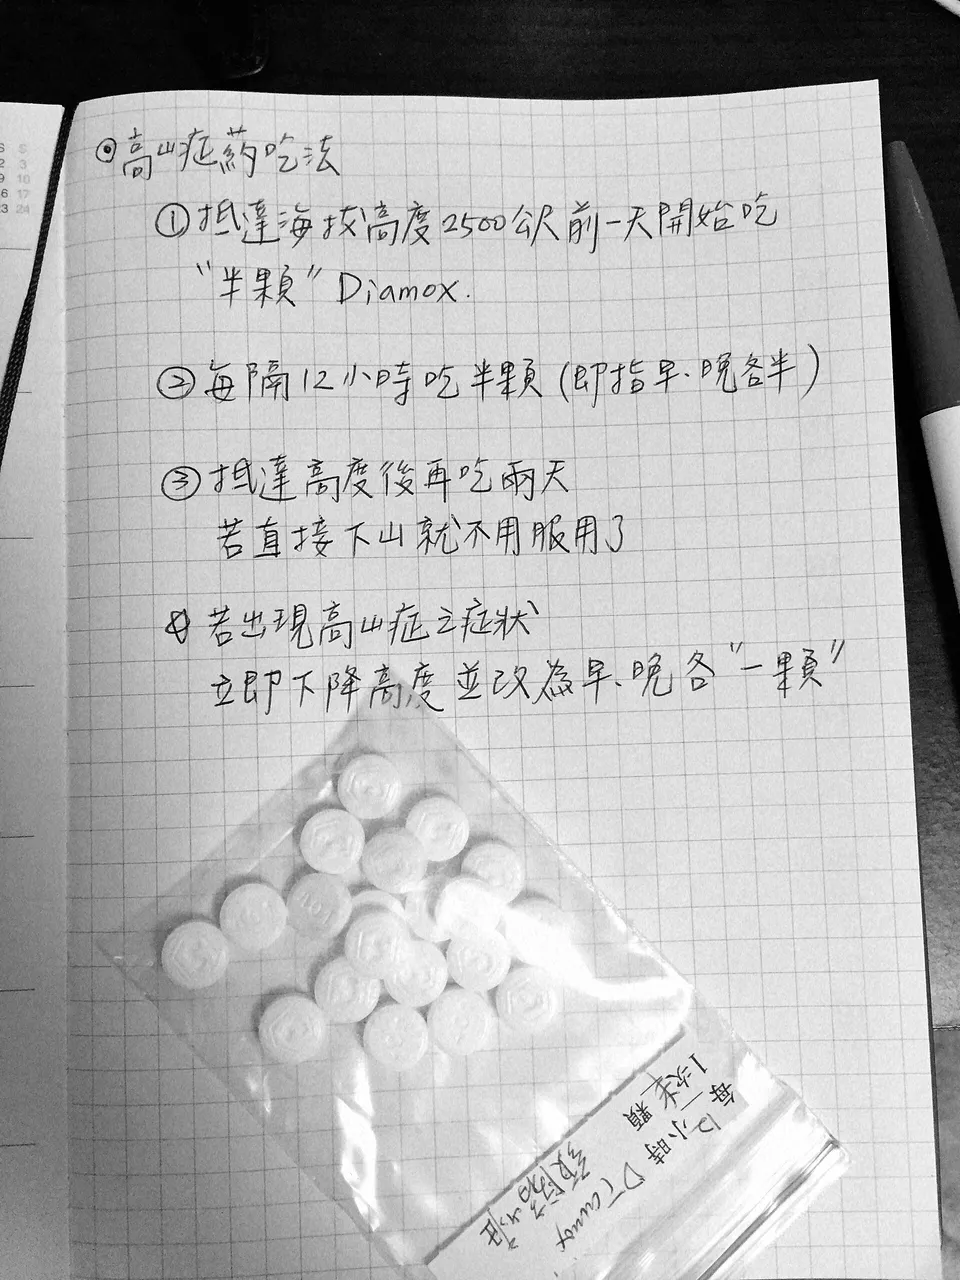 S S
2 3
9 10
16 17
23 24
高山症藥吃法
①抵達海拔高度2500公尺前一天開始吃
“半顆” Diamox.
②每隔12小時吃半顆(即指早、晚各半)
③抵達高度後再吃兩天
若直接下山就不用服用了
若出現高山症之症狀
立即下降高度並改為早、晚各“一顆”
每12小時
1次半顆
Diamox
預防高山症